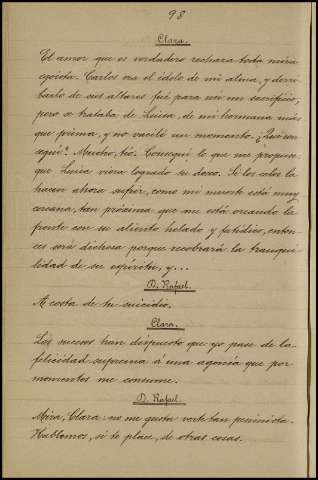 98
Clara.
El amor que es verdadero rechaza toda mira
egoista. Carlos era el ídolo de mi alma, y derri-
barlo de sus altares fué para mi un sacrificio;
pero se trataba de Luisa, de mi hermana más
que prima, y no vacilé un momento. ¿Qué con-
seguí? Mucho, tío. Conseguí lo que me propuse
que Luisa viera logrado su deseo. Si los celos la
hacen ahora sufrir, como mi muerte está muy
cercana, tan próxima que me está oreando la
frente con su aliento helado y fatídico, enton-
ces será dichosa porque recobrará la tranqui-
lidad de su espíritu, y...
D. Rafael.
A costa de tu suicidio.
Clara.
Los sucesos han dispuesto que yo pase de la
felicidad suprema á una agonía que por
momentos me consume.
D. Rafael.
Mira, Clara: no me gusta verte tan pesimista.
Hablemos, si te place, de otras cosas.